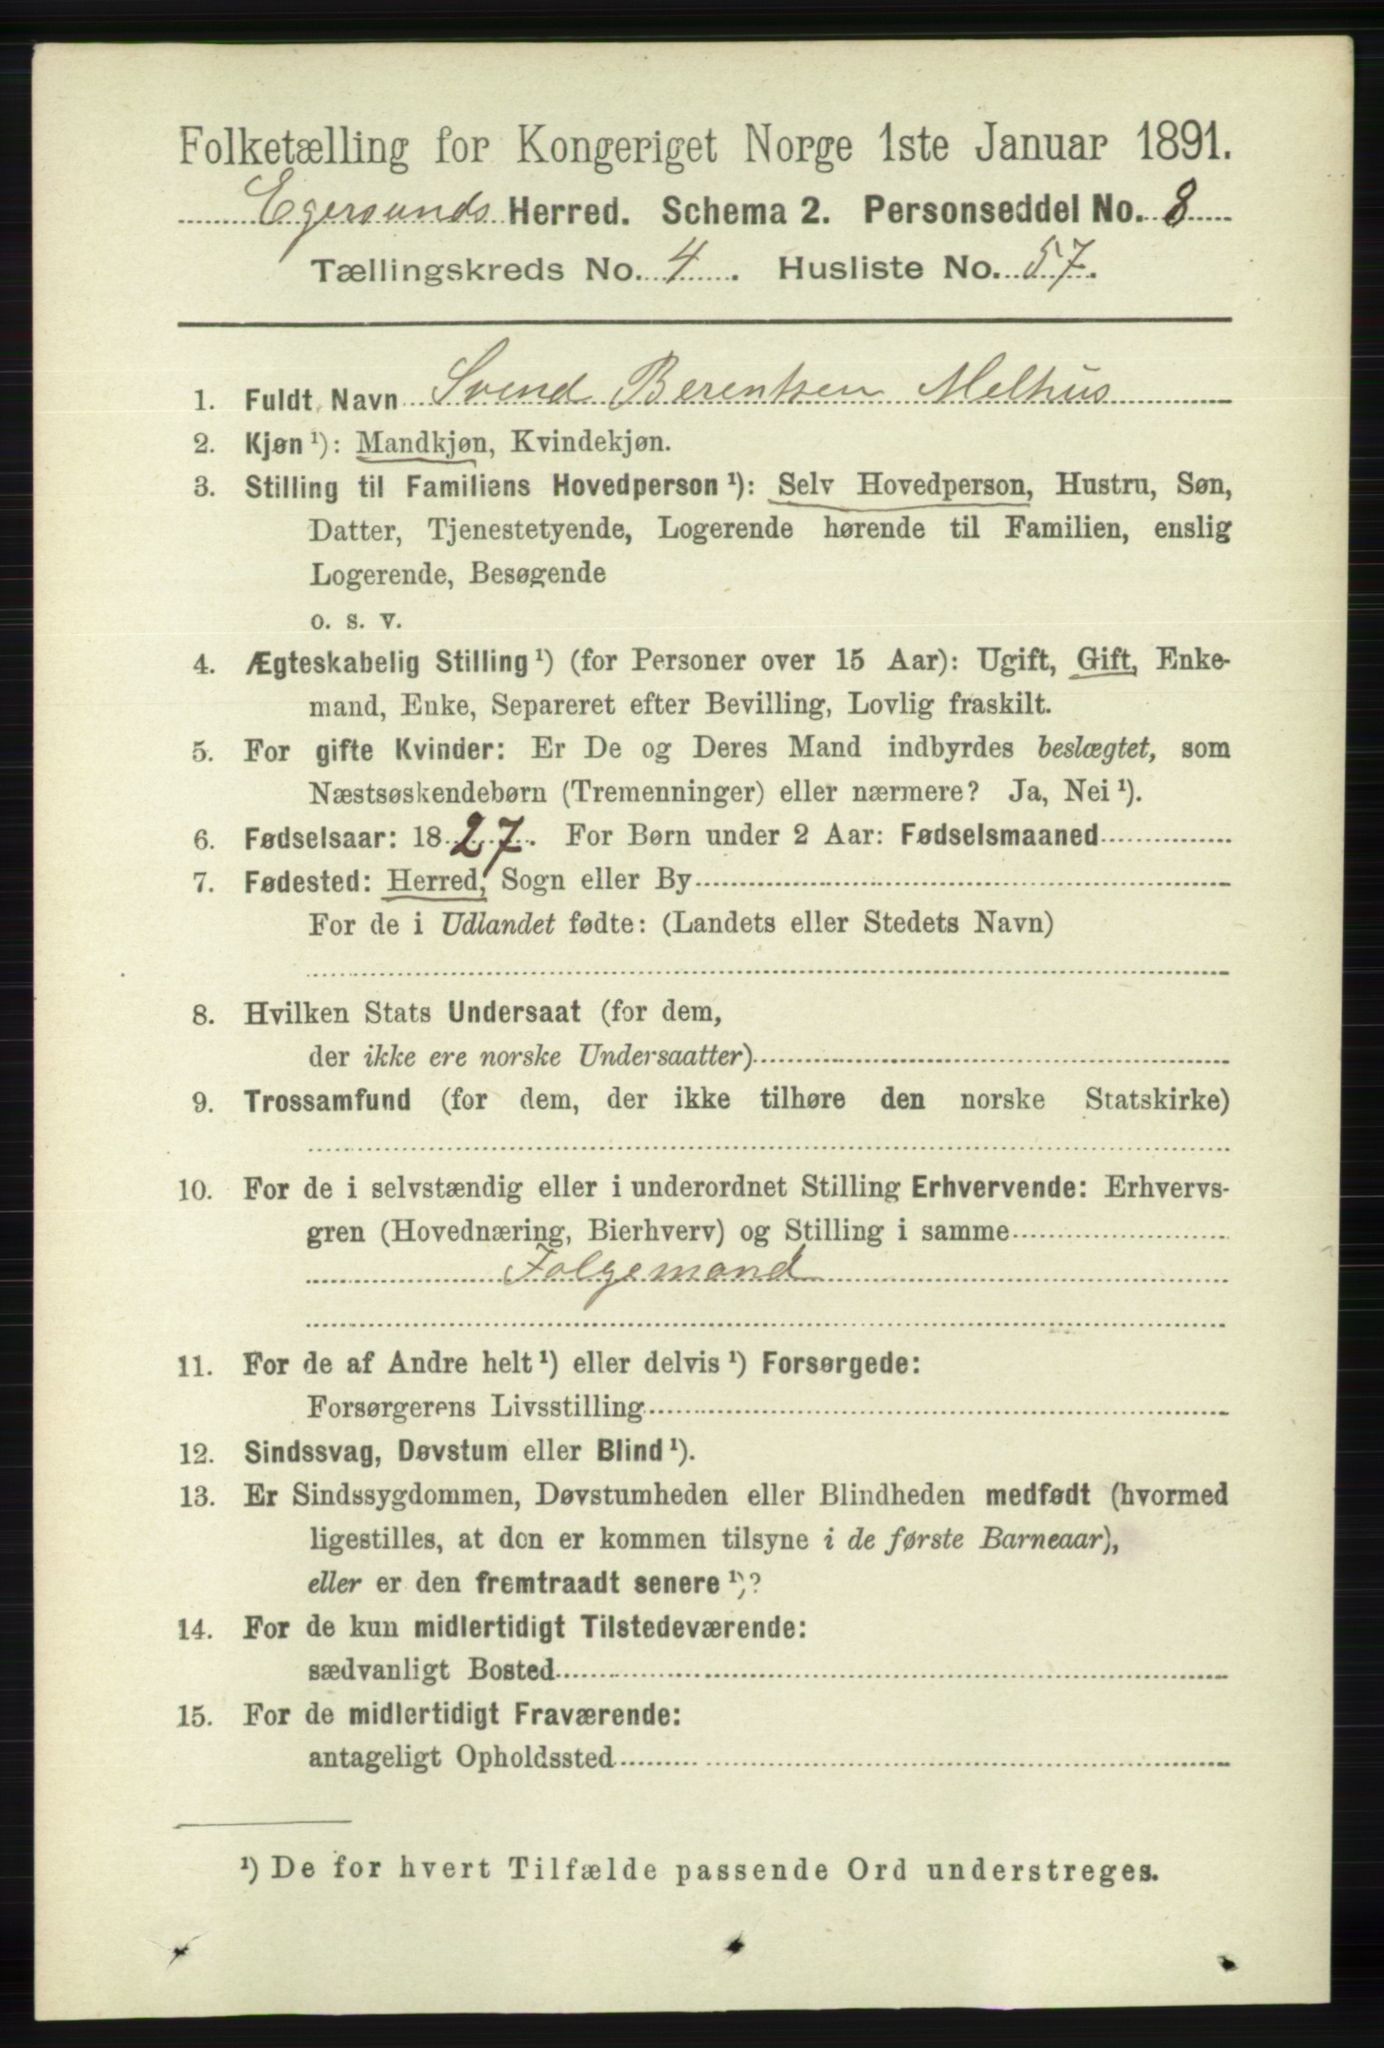 Folketælling for Kongeriget Norge 1ste Januar 1891.
Egersunds Herred. Schema 2. Personseddel No. 8
Tællingskreds No. 4. Husliste No. 57.
1. Fuldt Navn Svend Berentsen Melhus
2. Kjøn ¹): Mandkjøn, Kvindekjøn.
3. Stilling til Familiens Hovedperson ¹): Selv Hovedperson, Hustru, Søn,
Datter, Tjenestetyende, Logerende hørende til Familien, enslig
Logerende, Besøgende
o. s. v.
4. Ægteskabelig Stilling ¹) (for Personer over 15 Aar): Ugift, Gift, Enke-
mand, Enke, Separeret efter Bevilling, Lovlig fraskilt.
5. For gifte Kvinder: Er De og Deres Mand indbyrdes beslægtet, som
Næstsøskendebørn (Tremenninger) eller nærmere? Ja, Nei ¹).
6. Fødselsaar: 1827. For Børn under 2 Aar: Fødselsmaaned
7. Fødested: Herred, Sogn eller By
For de i Udlandet fødte: (Landets eller Stedets Navn)
8. Hvilken Stats Undersaat (for dem,
der ikke ere norske Undersaatter)
9. Trossamfund (for dem, der ikke tilhøre den norske Statskirke)
10. For de i selvstændig eller i underordnet Stilling Erhvervende: Erhvervs-
gren (Hovednæring, Bierhverv) og Stilling i samme
Folgemand
11. For de af Andre helt ¹) eller delvis ¹) Forsørgede:
Forsørgerens Livsstilling
12. Sindssvag, Døvstum eller Blind ¹).
13. Er Sindssygdommen, Døvstumheden eller Blindheden medfødt (hvormed
ligestilles, at den er kommen tilsyne i de første Barneaar),
eller er den fremtraadt senere ¹)?
14. For de kun midlertidigt Tilstedeværende:
sædvanligt Bosted
15. For de midlertidigt Fraværende:
antageligt Opholdssted
¹) De for hvert Tilfælde passende Ord understreges.